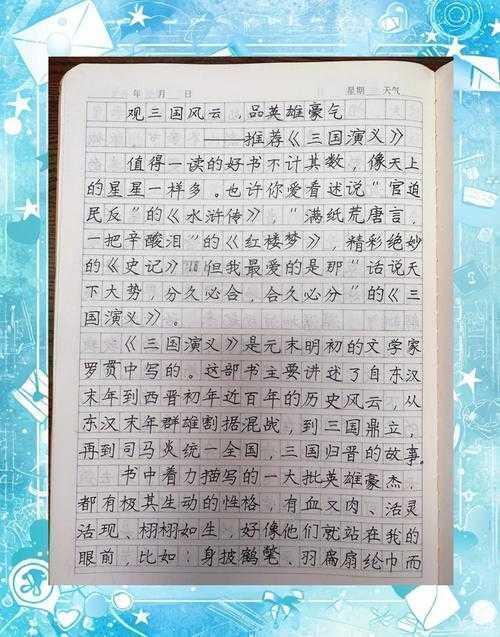 年 月 日 星期 天气
观三国风云，品英雄豪气
——推荐《三国演义》
值得一读的好书不计其数，像天上
的星星一样多。也许你爱看述说“官迫
民反”的《水浒传》，“满纸荒唐言，
一把辛酸泪”的《红楼梦》，精彩绝妙
的《史记》但我最爱的是那“话说天
下大势，分久必合，合久必分”的《三
国演义》。
《三国演义》是元末明初的文学家
罗贯中写的。这部书主要讲述了自东汉
末年到西晋初年近百年的历史风云，从
东汉末年群雄割据混战，到三国鼎立，
再到司马炎统一全国，三国归晋的故事。
书中着力描写的一大批英雄豪杰，
都有极其生动的性格，有血又肉、活灵
活现、栩栩如生，好像他们就站在我的
眼前，比如：身披鹤氅、羽扇扇纶巾而